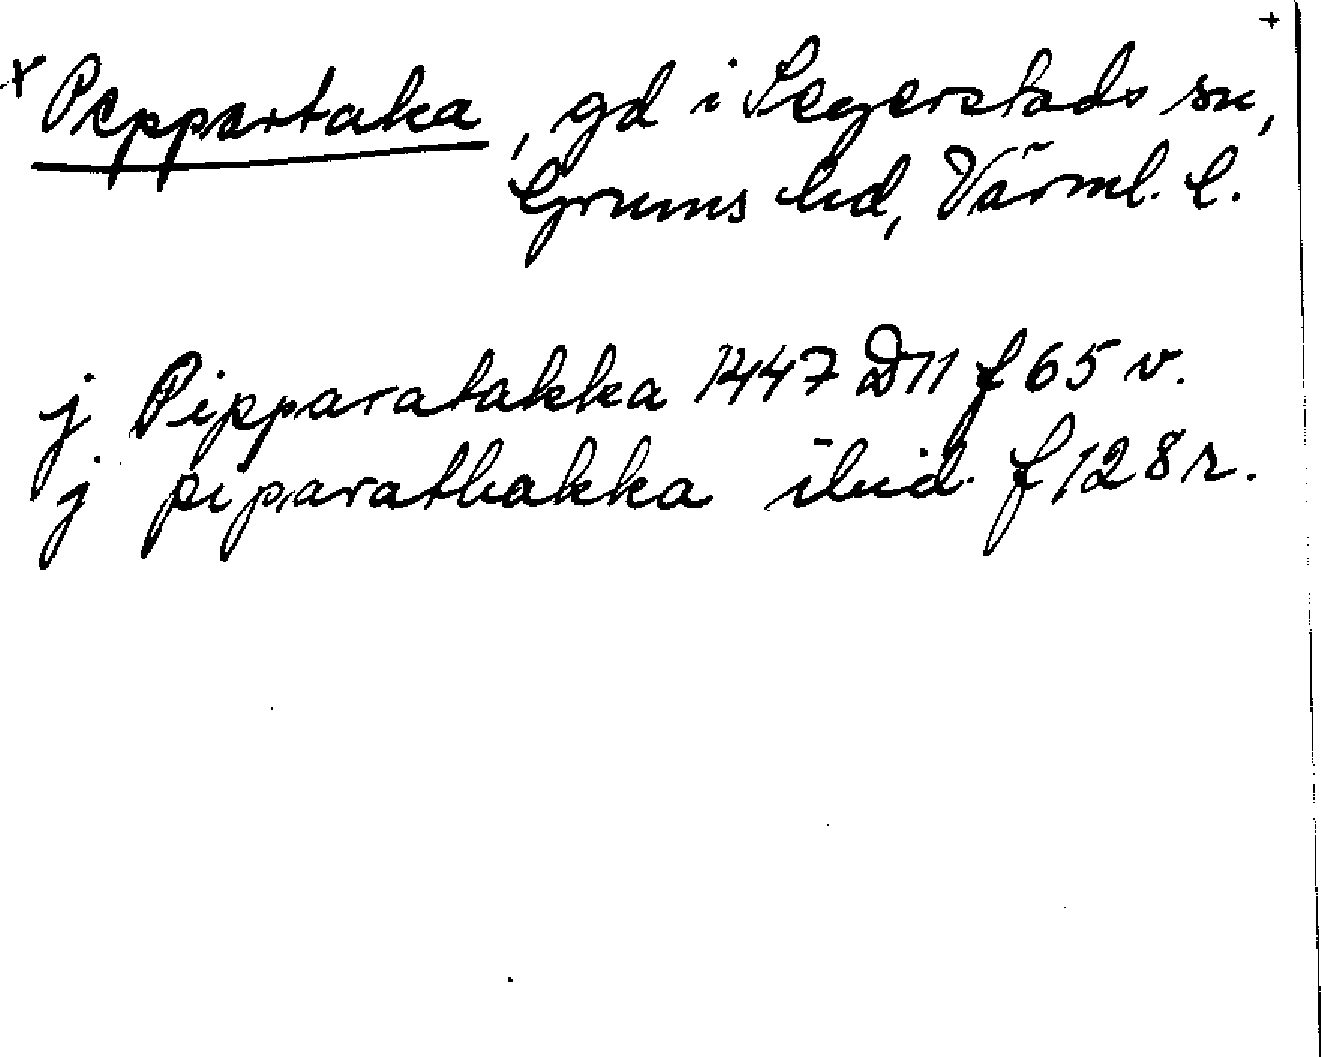 +
x Peppartaka, gd i Segerstads sn,
Grums hd, Värml. l.
j Pipparatakka 1447 D11 f 65 v.
j piparathakka ibid. f 128 r.